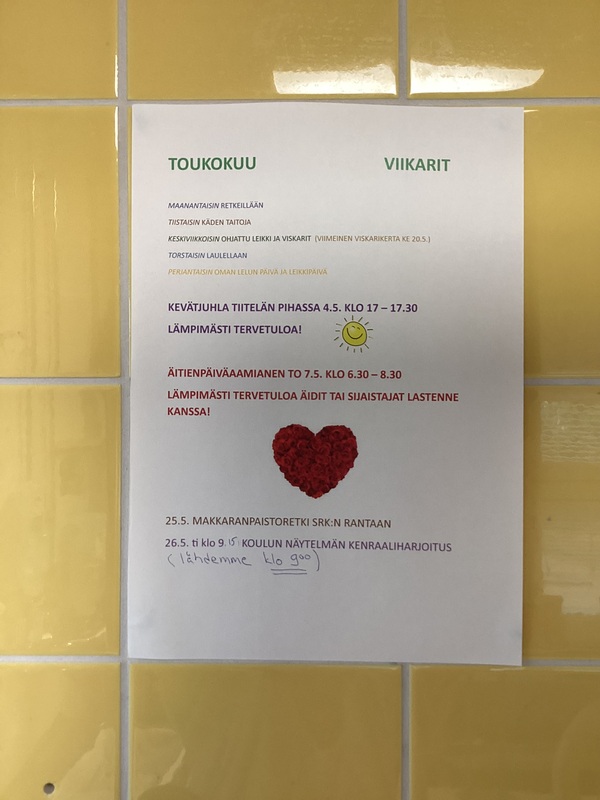 TOUKOKUU VIIKARIT
MAANANTAISIN RETKEILLÄÄN
TIISTAISIN KÄDEN TAITOJA
KESKIVIIKKOISIN OHJATTU LEIKKI JA VISKARIT (VIIMEINEN VISKARIKERTA KE 20.5.)
TORSTAISIN LAULELLAAN
PERJANTAISIN OMAN LELUN PÄIVÄ JA LEIKKIPÄIVÄ
KEVÄTJUHLA TIITELÄN PIHASSA 4.5. KLO 17 – 17.30
LÄMPIMÄSTI TERVETULOA!
ÄITIENPÄIVÄAAMIANEN TO 7.5. KLO 6.30 – 8.30
LÄMPIMÄSTI TERVETULOA ÄIDIT TAI SIJAISTAJAT LASTENNE
KANSSA!
25.5. MAKKARANPAISTORETKI SRK:N RANTAAN
26.5. ti klo 9.15 KOULUN NÄYTELMÄN KENRAALIHARJOITUS
(lähdemme klo 9⁰⁰)